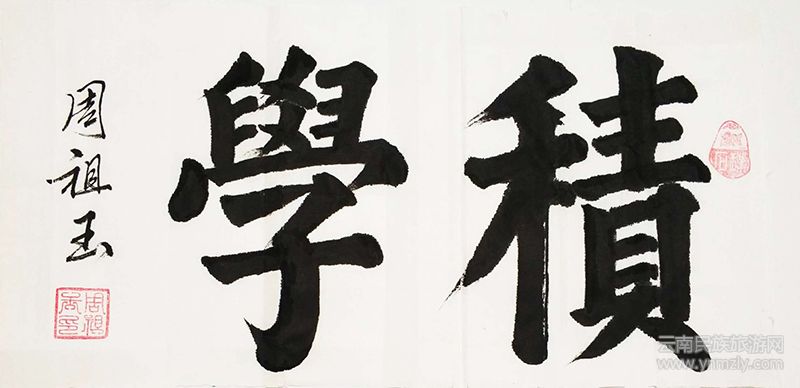 積學
周祖玉
云南民族旅游网
www.ynmzly.com